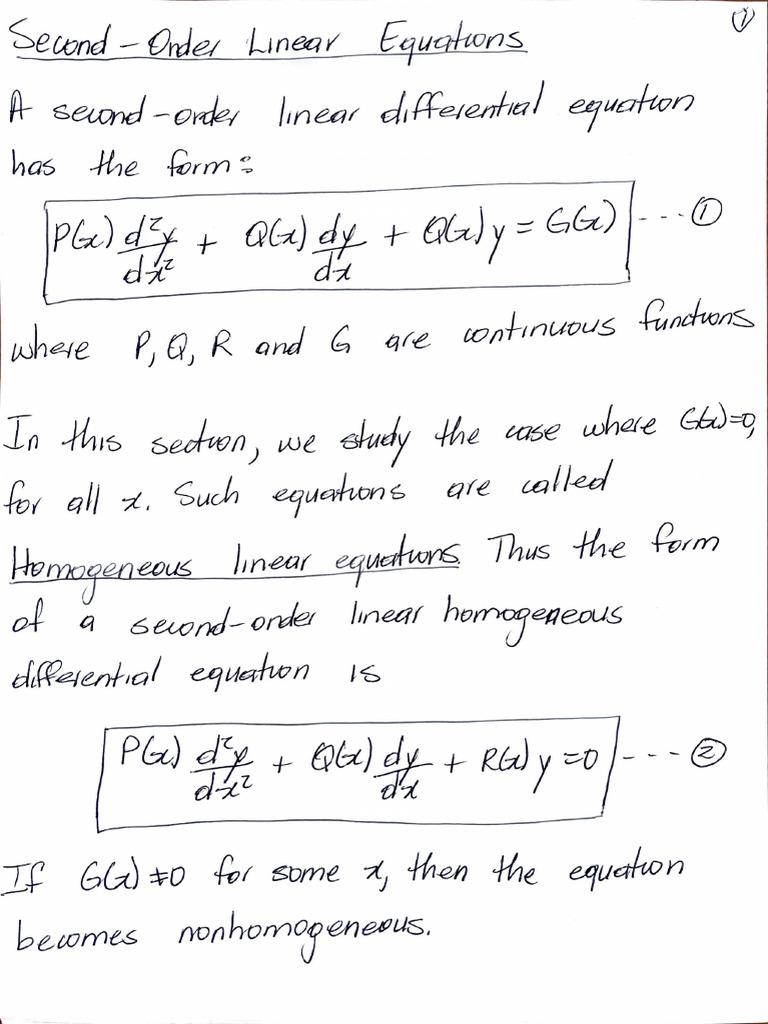 ①
Second-Order Linear Equations
A second-order linear differential equation
has the form:
P(x) d²y/dx² + Q(x) dy/dx + Q(x) y = G(x) --- ①
where P, Q, R and G are continuous functions
In this section, we study the case where G(x)=0,
for all x. Such equations are called
Homogeneous linear equations. Thus the form
of a second-order linear homogeneous
differential equation is
P(x) d²y/dx² + Q(x) dy/dx + R(x) y = 0 --- ②
If G(x) ≠ 0 for some x, then the equation
becomes nonhomogeneous.